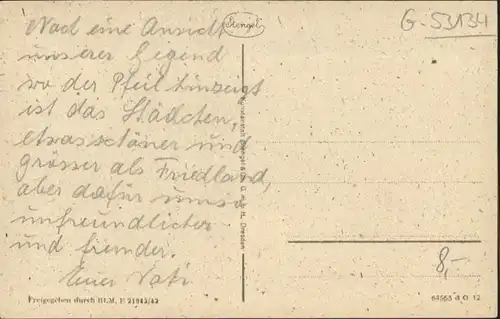 Noch eine Ansicht
unserer Gegend
wo der Pfeil hinzeigt
ist das Städchen,
etwas schöner und
grösser als Friedland,
aber dafür umso
unfreundlicher
und fremder.
Euer Vati
Stengel
G-53134
Kunstanstalt Stengel & Co., G. m. b. H., Dresden
8,-
Freigegeben durch RLM, E 21942/42
64563 d O 12